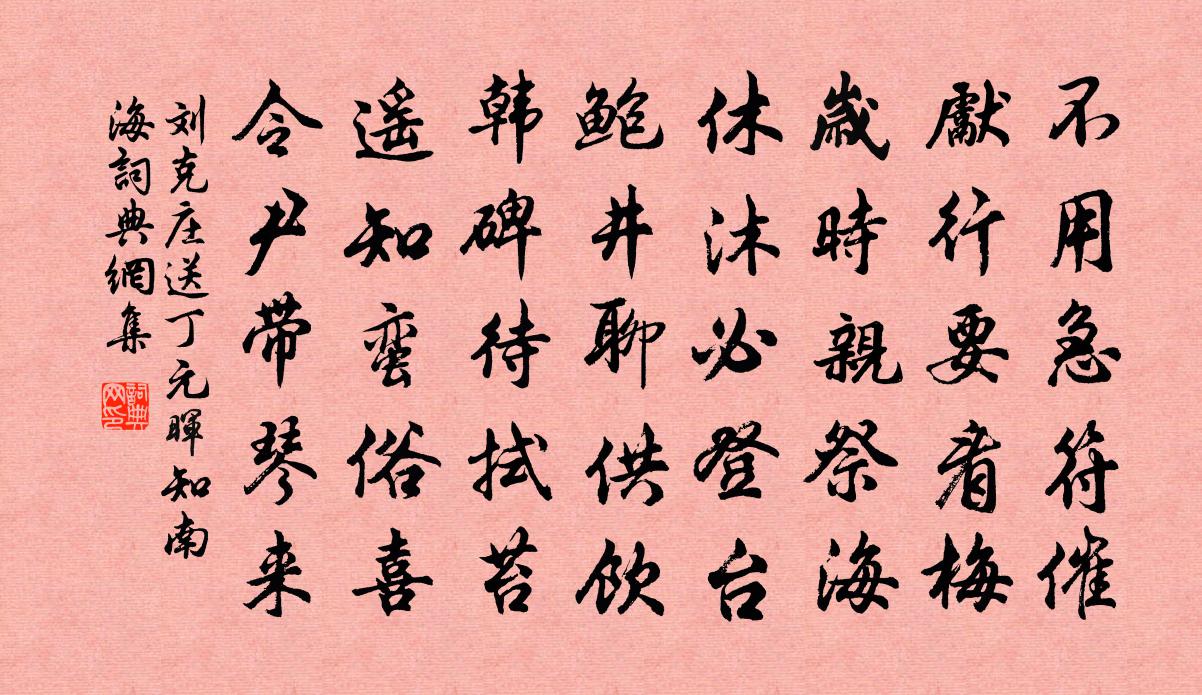 不用急符催
獻行要看梅
歲時親祭海
休沐必登台
鮑井聊供飲
韩碑待拭苔
遥知蛮俗喜
令尹带琴来
刘克庄送丁元暉知南
海詞典網集
詞典網印